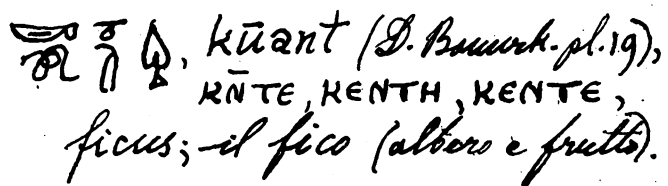 , kūant (D. Bauurk. pl. 19),
ⲕⲛ̄ⲧⲉ, ⲕⲉⲛⲧⲏ, ⲕⲉⲛⲧⲉ,
ficus; il fico (albero e frutto).